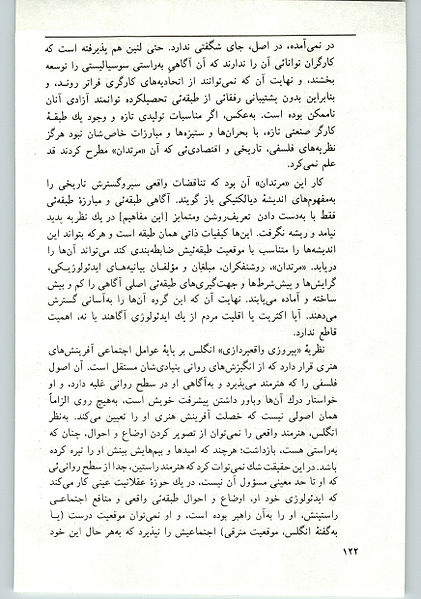 در نمی‌آمده، در اصل، جای شگفتی ندارد. حتی لنین هم پذیرفته است که
کارگران توانائی آن را ندارند که آن آگاهی به‌راستی سوسیالیستی را توسعه
بخشند، و نهایت آن که نمی‌توانند از اتحادیه‌های کارگری فراتر روند، و
بنابراین بدون پشتیبانی رفقائی از طبقه‌ئی تحصیلکرده توانمند آزادی آنان
ناممکن بوده است. به‌عکس، اگر مناسبات تولیدی تازه و وجود یک طبقهٔ
کارگر صنعتی تازه، با بحران‌ها و ستیزه‌ها و مبارزات خاص‌شان نبود هرگز
نظریه‌های فلسفی، تاریخی و اقتصادی‌ئی که آن «مرتدان» مطرح کردند قد
علم نمی‌کرد.
کار این «مرتدان» آن بود که تناقضات واقعی سیروگسترش تاریخی را
به‌مفهوم‌های اندیشهٔ دیالکتیکی باز گویند. آگاهی طبقه‌ئی و مبارزهٔ طبقه‌ئی
فقط با به‌دست دادن تعریف‌روشن ومتمایز [این مفاهیم] در یك نظریه پدید
نیامد و ریشه نگرفت. این‌ها کیفیات ذاتی همان طبقه است و هرکه بتواند این
اندیشه‌ها را متناسب با موقعیت طبقه‌ئیش ضابطه‌بندی کند می‌تواند آن‌ها را
دریابد. «مرتدان»، روشنفکران، مبلغان و مؤلفـان بیانیه‌هـای ایدئولوژیـکی،
گرایش‌ها و پیش‌شرط‌ها و جهت‌گیری‌های طبقه‌ئی اصلی آگاهی را کم و بیش
ساخته و آماده می‌یابند. نهایت آن که این گروه آن‌ها را به‌آسانی گسترش
می‌دهند. آیا اکثریت یا اقلیت مردم از یك ایدئولوژی آگاهند یا نه، اهمیت
قاطع ندارد.
نظریهٔ «پیروزی واقعپردازی» انگلس بر پایهٔ عوامل اجتماعی آفرینش‌های
هنری قرار دارد که از انگیزش‌های روانی بنیادی‌شان مستقل است. آن اصول
فلسفی را که هنرمند می‌پذیرد و به‌آگاهی او در سطح روانی غلبه دارد، و او
خواستار درك آن‌ها وباور داشتن پیشرفت خویش است، به‌هیچ روی الزاماً
همان اصولی نیست که خصلت آفرینش هنری او را تعیین می‌کند. به‌نظر
انگلس، هنرمند واقعی را نمی‌توان از تصویر کردن اوضاع و احوال، چنان که
به‌راستی هست، بازداشت؛ هرچند که امیدها و بیم‌هایش بینش او را تیره کرده
باشد. در این حقیقت شك نمی‌توان کرد که هنرمند راستین، جدا از سطح روانی‌ئی
که او تا حد معینی مسؤول آن نیست، در یک حوزهٔ عقلانیت عینی کار می‌کند
که ایدئولوژی خود او، اوضاع و احوال طبقه‌ئی واقعی و منافع اجتماعـی
راستینش، او را به‌آن راهبر بوده است، و او نمی‌توان موقعیت درست (یـا
به‌گفتهٔ انگلس، موقعیت مترقی) اجتماعیش را نپذیرد که به‌هر حال این خود
۱۲۲